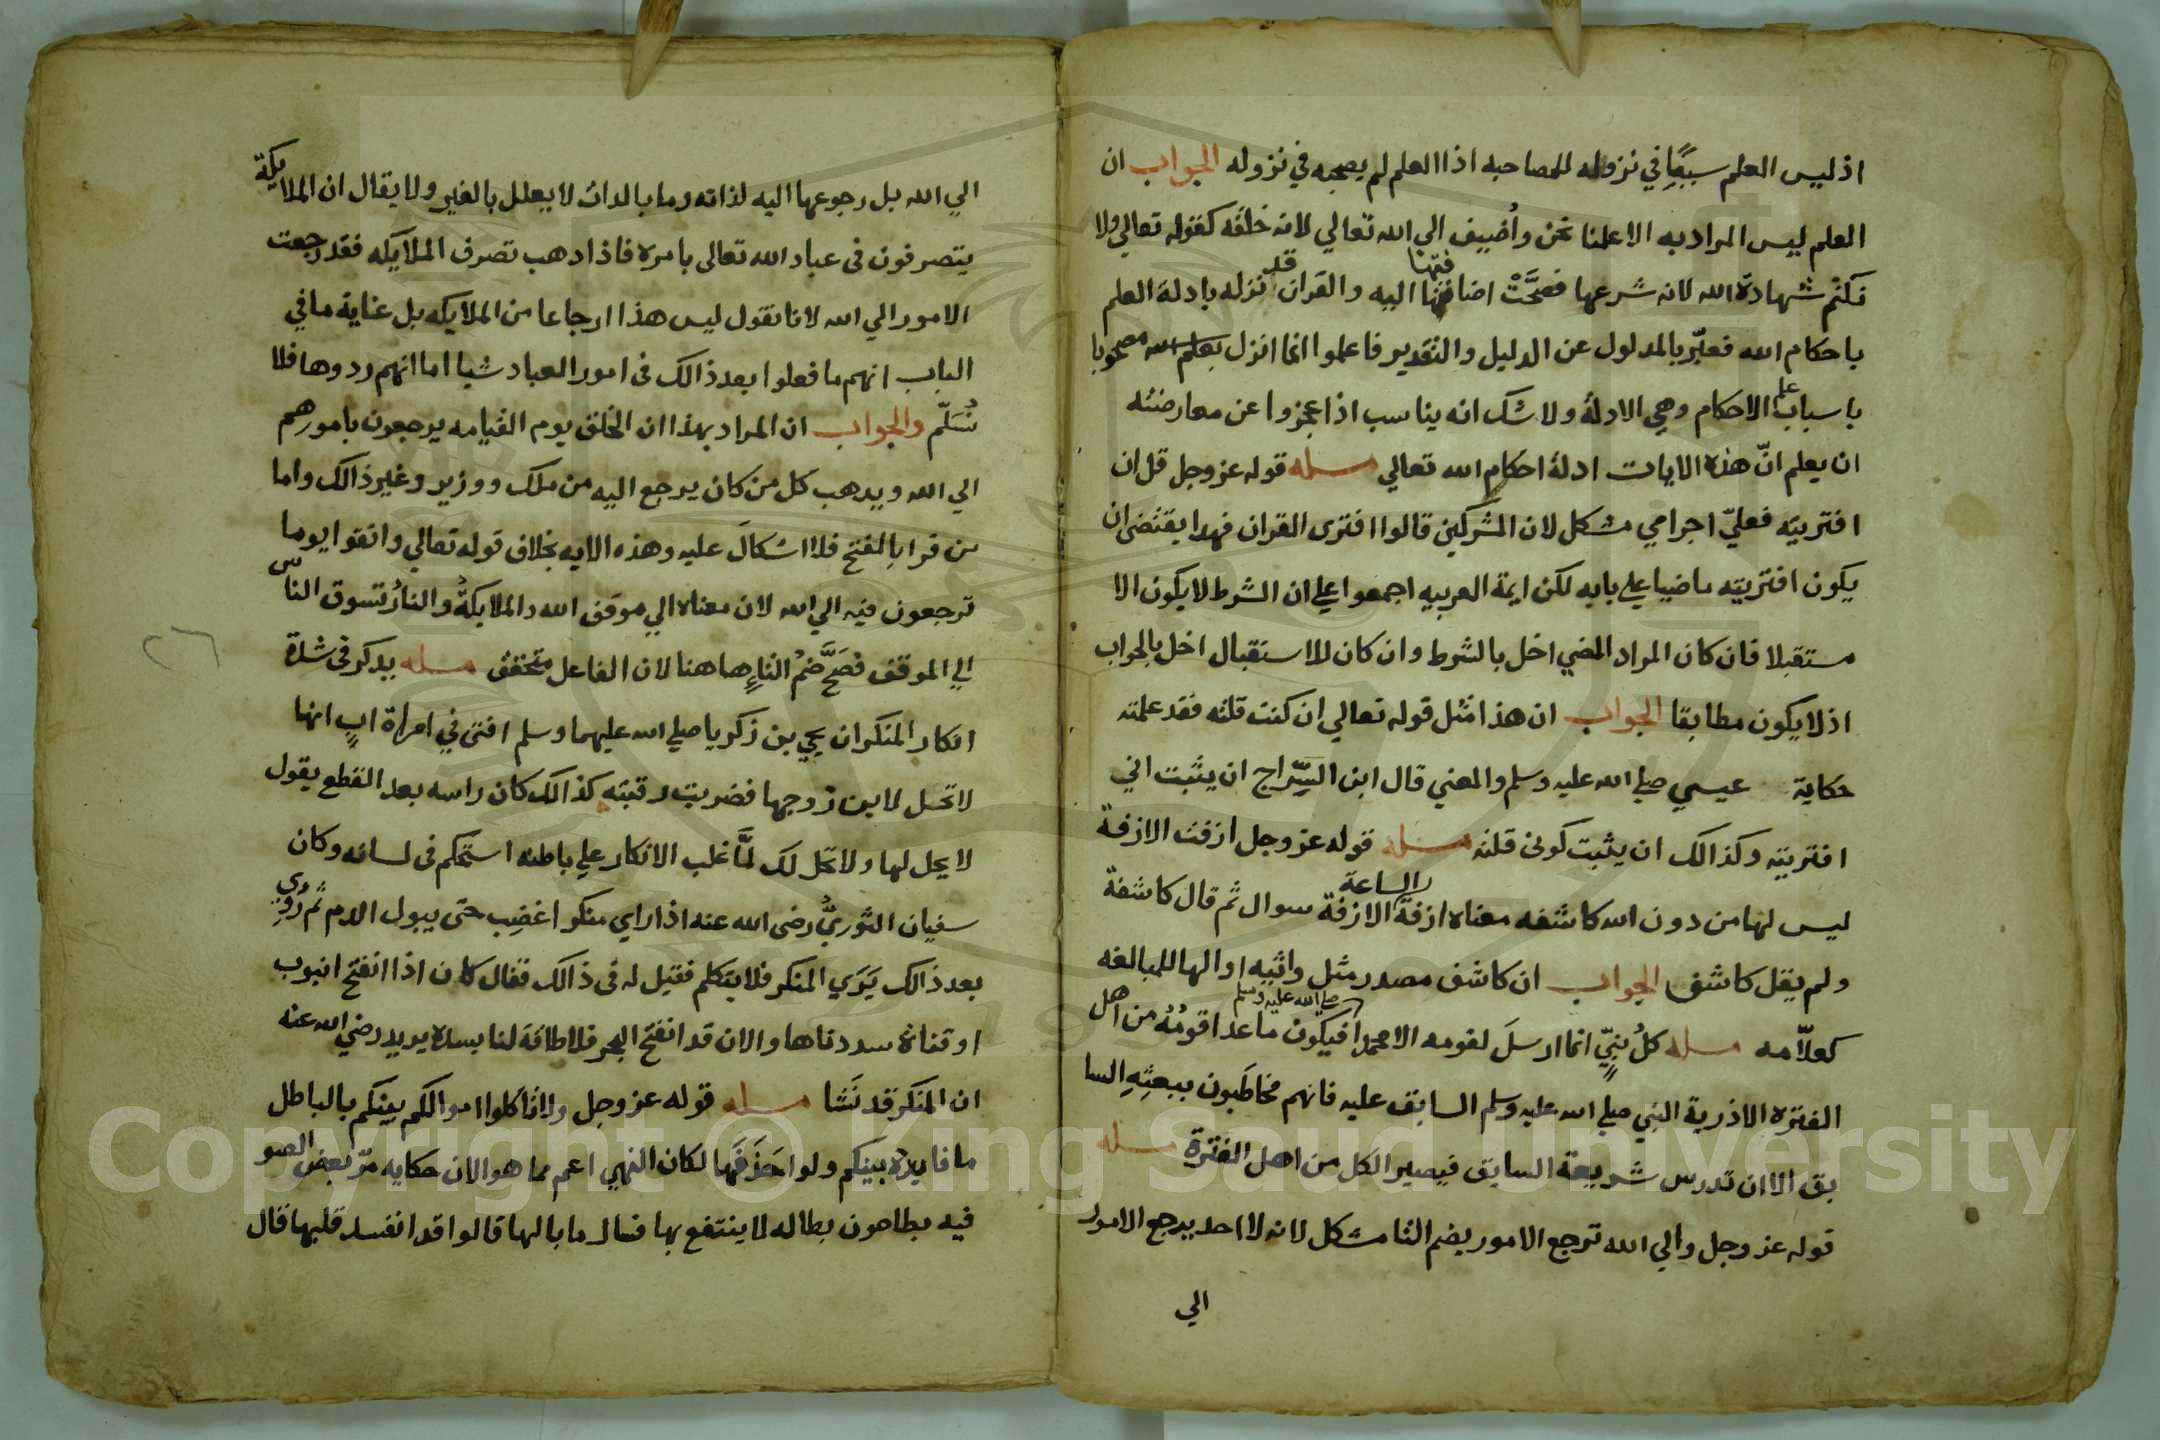 اذ ليس العلم سببا في نزوله للمصاحبه اذا العلم لم يصحبه في نزوله الجواب ان
العلم ليس المراد به الا علمنا نحن وأضيف الي الله تعالي لانه خلقه كقوله تعالي ولا
نكتم شهادة الله لانه شرعها فصحت اضافتها اليه والقران قد نزله بادلة العلم
باحكام الله فعبر بالمدلول عن الدليل والتقدير فاعلموا انما انزل بعلم الله مصحوبا
باسباب علم الاحكام وهي الادلة ولا شك انه يناسب اذا عجزوا عن معارضته
ان يعلم ان هذه الايات ادلة احكام الله تعالي مسله قوله عز وجل قل ان
افتريته فعلي اجرامي مشكل لان المشركين قالوا افترى القران فهدا يقتضى ان
يكون افتريته ماضيا علي بابه لكن ايمة العربيه اجمعوا علي ان الشرط لا يكون الا
مستقبلا فان كان المراد المضي اخل بالشرط وان كان للاستقبال اخل بالجواب
اذ لا يكون مطابقا الجواب ان هذا مثل قوله تعالي ان كنت قلته فقد علمته
حكاية عيسي صلي الله عليه وسلم والمعني قال ابن السراج ان يثبت اني
افتريته وكذالك ان يثبت كوني قلته مسله قوله عز وجل ازفت الازفة
ليس لها من دون الله كاشفه معناه ازفة الازفة الساعة سوال ثم قال كاشفة
ولم يقل كاشف الجواب ان كاشف مصدر مثل واثيه او الها للمبالغه
كعلامه مسله كل نبي انما ارسل لقومه الا محمدا صلي الله عليه وسلم فيكون ما عدا قومه من اهل
الفترة الا ذرية النبي صلي الله عليه وسلم السابق عليه فانهم مخاطبون ببعثه السا
بق الا ان تدرس شريعة السابق فيصير الكل من اهل الفترة مسله
قوله عز وجل والي الله ترجع الامور بضم التا مشكل لانه لا احد يرجع الامور
الي
الي الله بل رجوعها اليه لذاته وما بالدات لا يعلل بالغير ولا يقال ان الملايكة
يتصرفون فى عباد الله تعالى بامره فاذا دهب تصرف الملايكه فقد رجعت
الامور الي الله لانا نقول ليس هذا ارجاعا من الملايكه بل غاية ما في
الباب انهم ما فعلوا بعد ذالك فى امور العباد شيا اما انهم ردوها فلا
نسلم والجواب ان المراد بهذا ان الخلق يوم القيامه يرجعون بامورهم
الي الله ويدهب كل من كان يرجع اليه من ملك ووزير وغير ذالك واما
من قرا بالفتح فلا اشكال عليه وهذه الايه بخلاف قوله تعالي واتقوا يوما
ترجعون فيه الي الله لان معناه الي موقف الله والملايكة والنار تسوق الناس
الي الموقف فصح ضم التاء هاهنا لان الفاعل متحقق مسله يدكر فى شدة
انكار المنكر ان يحيي بن زكريا صلي الله عليهما وسلم افتى في امراة اب انها
لا تحل لابن زوجها فضربت رقبته كذالك كان راسه بعد القطع يقول
لا يحل لها ولا تحل لك لما غلب الانكار علي باطنه استحكم فى لسانه وكان
سفيان الثوري رضى الله عنه اذا راي منكرا غضب حتى يبول الدم ثم روي
بعد ذالك يري المنكر فلا يتكلم فقيل له فى ذالك فقال كان اذا انفتح انبوب
او قناة سددناها والان قد انفتح البحر فلا طاقة لنا بسده يريد رضي الله عنه
ان المنكر قد نشا مسله قوله عز وجل ولا تاكلوا اموالكم بينكم بالباطل
ما فايدة بينكم ولو حذفها لكان النهي اعم مما هو الان حكايه مر بعض الصو
فيه بطاحون بطاله لا ينتفع بها فسال ما بالها قالوا قد انفسد قلبها قال
٢٦
Copyright © King Saud University